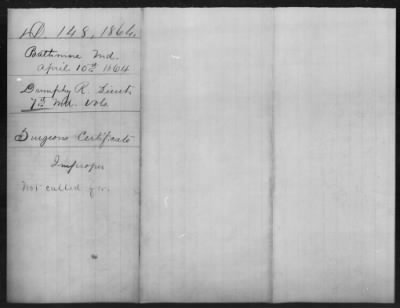 D. 148, 1864.
Baltimore Md.
April 10th 1864
Dumphy R. Lieut.
7th Md. Vols.
Surgeons Certificate
Improper
Not called for.